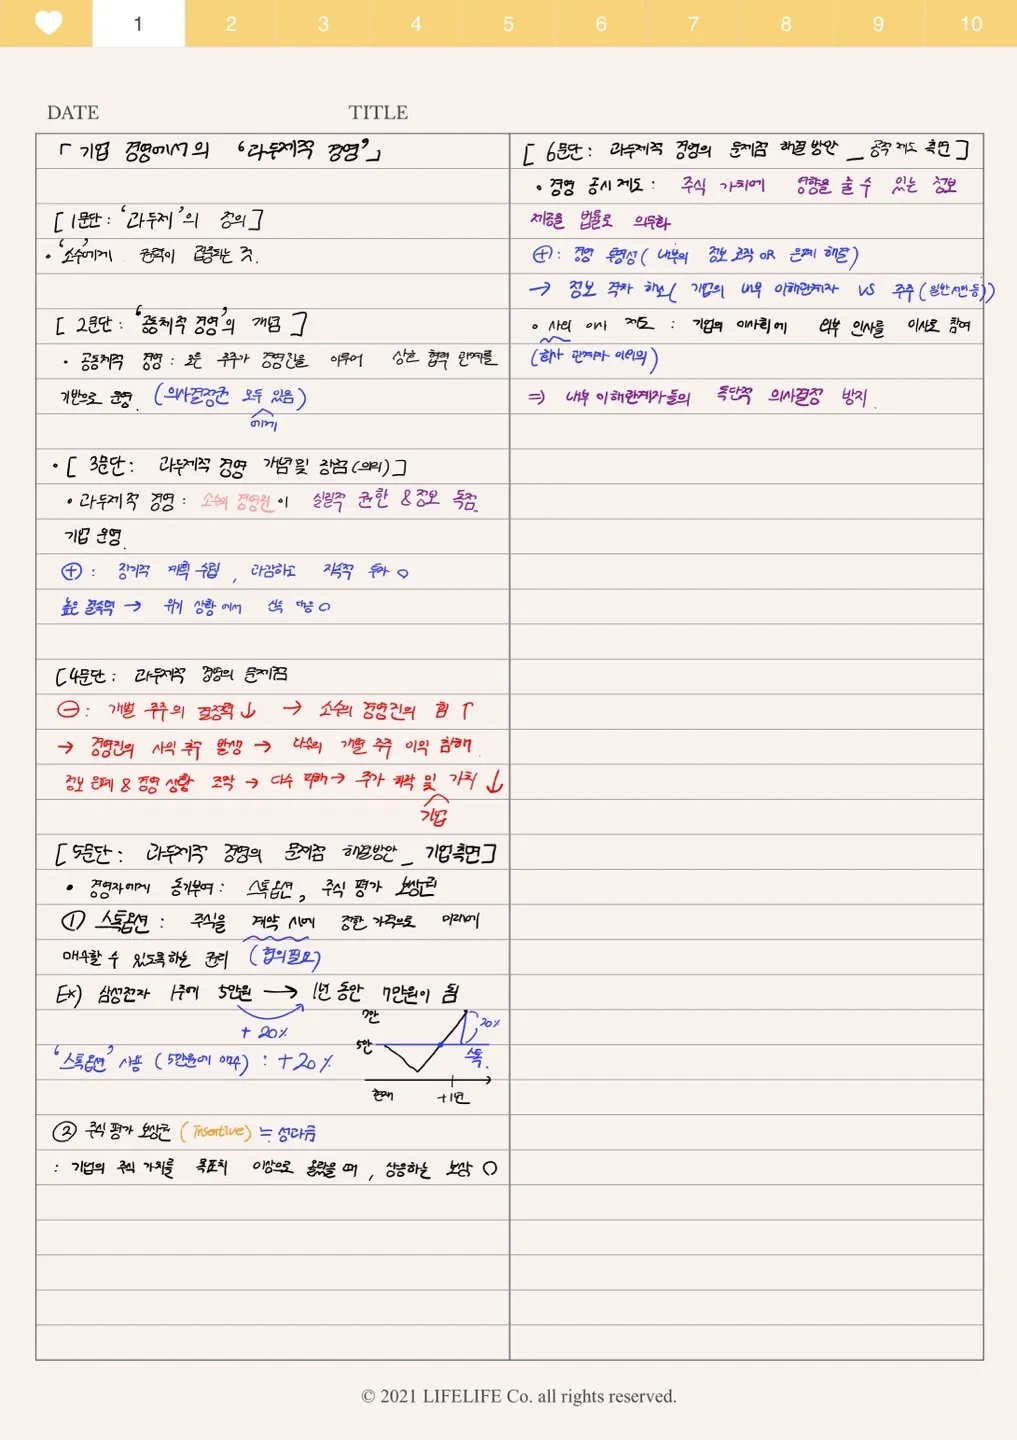 1 2 3 4 5 6 7 8 9 10
DATE TITLE
「기업 경영에서의 '과두제적 경영'」
[1문단: '과두제'의 정의]
• '소수'에게 권력이 집중되는 것.
[2문단: '공동체적 경영'의 개념]
• 공동체적 경영: 모든 주주가 경영진을 이루어 상호 협력 관계를
기반으로 운영. (의사결정권 모두 있음)
에게
• [3문단: 과두제적 경영 개념 및 장점(의의)]
• 과두제적 경영: 소수의 경영진이 실질적 권한 & 정보 독점.
기업 운영.
⊕: 장기적 계획 수립, 과감하고 지속적 투자 O
높은 결속력 → 위기 상황에서 신속 대응 O
[4문단: 과두제적 경영의 문제점
⊖: 개별 주주의 결정력↓ → 소수의 경영진의 힘 ↑
→ 경영진의 사익 추구 발생 → 다수의 개별 주주 이익 침해.
정보 은폐 & 경영 상황 조작 → 다수 피해 → 주가 하락 및 가치 ↓
기업
[5문단: 과두제적 경영의 문제점 해결방안_ 기업측면]
• 경영자에게 동기부여: 스톡옵션, 주식 평가 보상권
① 스톡옵션: 주식을 계약 시에 정한 가격으로 미래에
매수할 수 있도록 하는 권리 (협의필요)
Ex) 삼성전자 1주에 5만원 → 1년 동안 7만원이 됨
+ 20%
'스톡옵션' 사용 (5만원에 매수) : +20%
7만
5만
20%
스톡.
현재 +1년
② 주식 평가 보상권 (Insentive) ≒ 성과급
: 기업의 주식 가치를 목표치 이상으로 올렸을 때, 상응하는 보상 O
[6문단: 과두제적 경영의 문제점 해결 방안 _ 공적 제도 측면]
• 경영 공시 제도: 주식 가치에 영향을 줄 수 있는 정보
제공을 법률로 의무화
⊕: 경영 투명성 (내부의 정보 조작 OR 은폐 해결)
→ 정보 격차 해소( 기업의 내부 이해관계자 VS 주주(일반시민 등))
• 사외 이사 제도: 기업의 이사회에 외부 인사를 이사로 참여
(회사 관계자 이외의)
⇒ 내부 이해관계자들의 독단적 의사결정 방지.
© 2021 LIFELIFE Co. all rights reserved.